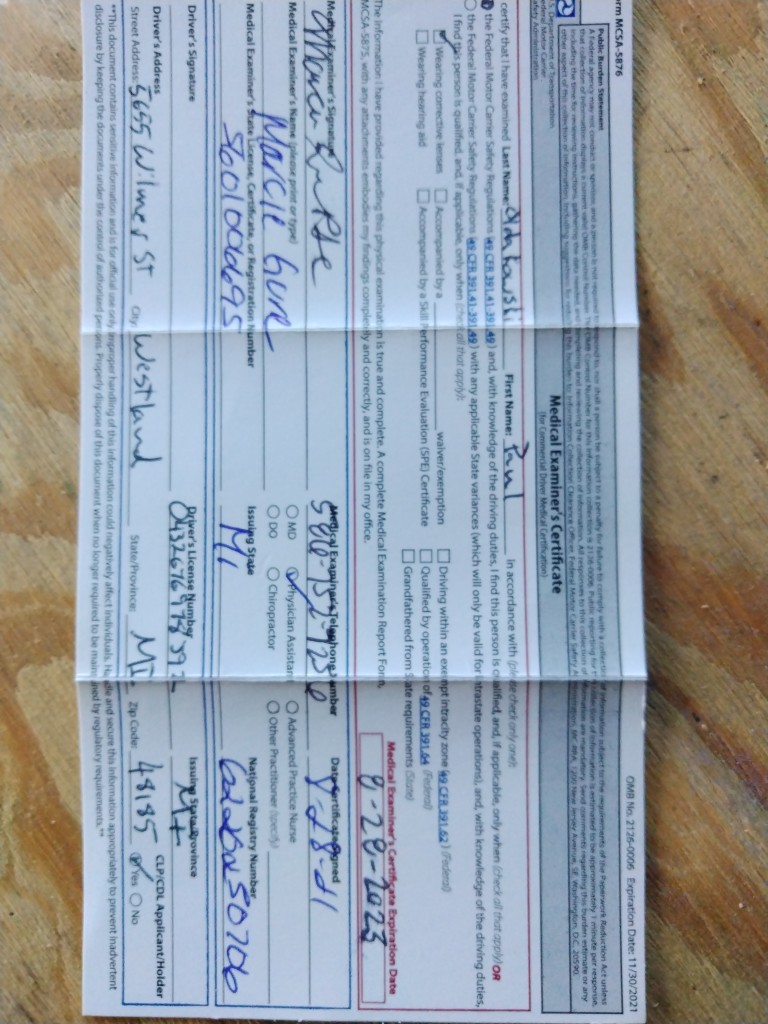 Form MCSA-5876
OMB No. 2126-0006 Expiration Date: 11/30/2021
Public Burden Statement
A Federal agency may not conduct or sponsor, and a person is not required to respond to, nor shall a person be subject to a penalty for failure to comply with a collection of information subject to the requirements of the Paperwork Reduction Act unless
that collection of information displays a current valid OMB Control Number. The OMB Control Number for this information collection is 2126-0006. Public reporting for this collection of information is estimated to be approximately 1 minute per response,
including the time for reviewing instructions, gathering the data needed, and completing and reviewing the collection of information. All responses to this collection of information are mandatory. Send comments regarding this burden estimate or any
other aspect of this collection of information, including suggestions for reducing this burden to: Information Collection Clearance Officer, Federal Motor Carrier Safety Administration, MC-RRA, 1200 New Jersey Avenue, SE, Washington, D.C. 20590.
U.S. Department of Transportation
Federal Motor Carrier
Safety Administration
Medical Examiner's Certificate
(for Commercial Driver Medical Certification)
certify that I have examined Last Name: First Name: Paul in accordance with (please check only one):
the Federal Motor Carrier Safety Regulations (49 CFR 391.41-391.49) and, with knowledge of the driving duties, I find this person is qualified, and, if applicable, only when (check all that apply) OR
the Federal Motor Carrier Safety Regulations (49 CFR 391.41-391.49) with any applicable State variances (which will only be valid for intrastate operations), and, with knowledge of the driving duties,
I find this person is qualified, and, if applicable, only when (check all that apply):
Wearing corrective lenses Accompanied by a waiver/exemption Driving within an exempt intracity zone (49 CFR 391.62) (Federal)
Wearing hearing aid Accompanied by a Skill Performance Evaluation (SPE) Certificate Qualified by operation of 49 CFR 391.64 (Federal)
Grandfathered from State requirements (State)
The information I have provided regarding this physical examination is true and complete. A complete Medical Examination Report Form,
MCSA-5875, with any attachments embodies my findings completely and correctly, and is on file in my office.
Medical Examiner's Certificate Expiration Date
8-28-2023
Medical Examiner's Signature
Medical Examiner's Telephone Number
Date Certificate Signed
8-28-21
Medical Examiner's Name (please print or type)
Marcie
MD Physician Assistant Advanced Practice Nurse
DO Chiropractor Other Practitioner (specify)
Medical Examiner's State License, Certificate, or Registration Number
5601006695
Issuing State
MI
National Registry Number
Driver's Signature
Driver's License Number
Issuing State/Province
MI
Driver's Address
Street Address: 5655 Wilmer St City: Westland State/Province: MI Zip Code: 48185
CLP/CDL Applicant/Holder
Yes No
**This document contains sensitive information and is for official use only. Improper handling of this information could negatively affect individuals. Handle and secure this information appropriately to prevent inadvertent
disclosure by keeping the documents under the control of authorized persons. Properly dispose of this document when no longer required to be maintained by regulatory requirements.**